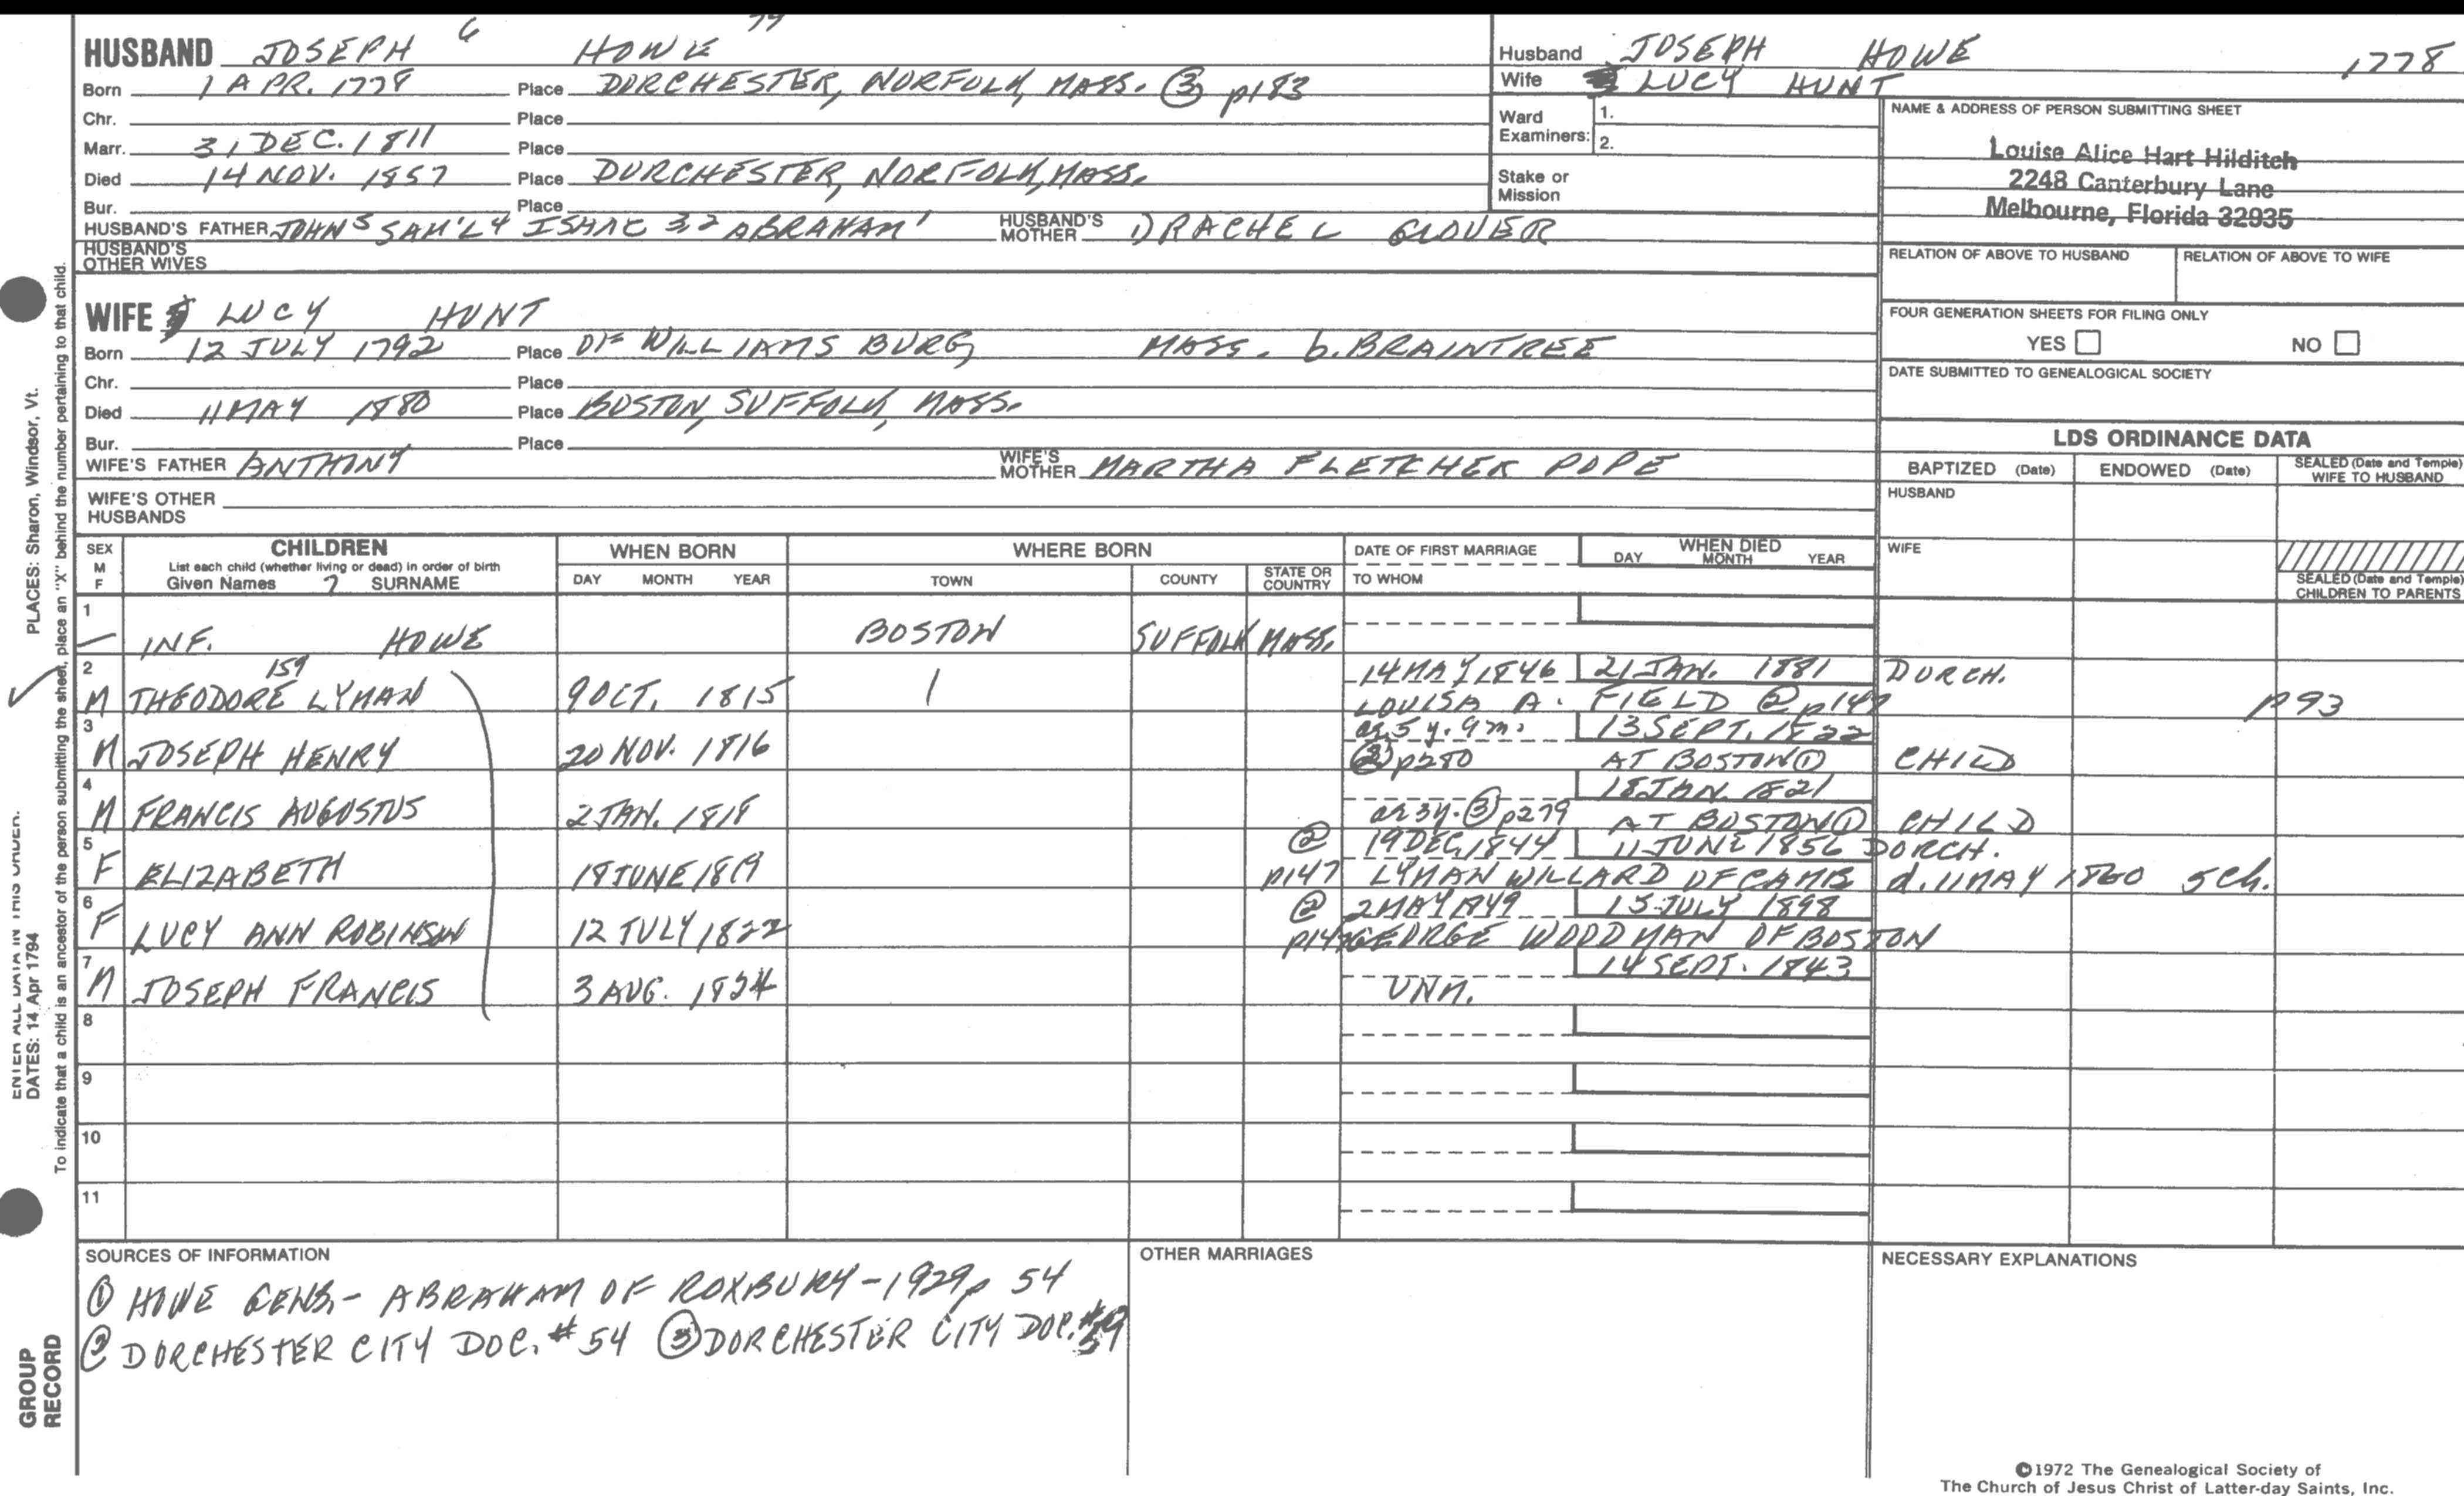 6 79
HUSBAND JOSEPH HOWE
Born 1 APR. 1778 Place DORCHESTER, NORFOLK, MASS. ③ p183
Chr. Place
Marr. 31 DEC. 1811 Place
Died 14 NOV. 1857 Place DORCHESTER, NORFOLK, MASS.
Bur. Place
HUSBAND'S FATHER JOHN 5 SAM'L 4 ISAAC 3,2 ABRAHAM 1 HUSBAND'S MOTHER 1) RACHEL GLOVER
HUSBAND'S OTHER WIVES
Husband JOSEPH HOWE 1778
Wife LUCY HUNT
Ward Examiners: 1.
2.
Stake or Mission
NAME & ADDRESS OF PERSON SUBMITTING SHEET
Louise Alice Hart Hilditch
2248 Canterbury Lane
Melbourne, Florida 32935
RELATION OF ABOVE TO HUSBAND RELATION OF ABOVE TO WIFE
FOUR GENERATION SHEETS FOR FILING ONLY
YES NO
DATE SUBMITTED TO GENEALOGICAL SOCIETY
WIFE LUCY HUNT
Born 12 JULY 1792 Place OF WILLIAMSBURG, MASS. b. BRAINTREE
Chr. Place
Died 11 MAY 1880 Place BOSTON, SUFFOLK, MASS.
Bur. Place
WIFE'S FATHER ANTHONY WIFE'S MOTHER MARTHA FLETCHER POPE
WIFE'S OTHER HUSBANDS
LDS ORDINANCE DATA
BAPTIZED (Date) ENDOWED (Date) SEALED (Date and Temple) WIFE TO HUSBAND
HUSBAND
WIFE
SEALED (Date and Temple) CHILDREN TO PARENTS
SEX M F CHILDREN WHEN BORN WHERE BORN DATE OF FIRST MARRIAGE WHEN DIED
List each child (whether living or dead) in order of birth
Given Names 7 SURNAME DAY MONTH YEAR TOWN COUNTY STATE OR COUNTRY TO WHOM DAY MONTH YEAR
1
INF. HOWE BOSTON SUFFOLK MASS.
2 159 14 MAY 1846 21 JAN. 1881 DORCH.
M THEODORE LYMAN 9 OCT. 1815 LOUISA A. FIELD ② p147 p93
3 ae 5 y. 9 m. 13 SEPT. 1822
M JOSEPH HENRY 20 NOV. 1816 ③ p280 AT BOSTON ① CHILD
4 18 JAN. 1821
M FRANCIS AUGUSTUS 2 JAN. 1818 ae 3y. ③ p279 AT BOSTON ① CHILD
5 ② 19 DEC. 1844 11 JUNE 1856 DORCH.
F ELIZABETH 18 JUNE 1819 p147 LYMAN WILLARD OF CAMB d. 11 MAY 1860 5 ch.
6 ② 2 MAY 1849 15 JULY 1898
F LUCY ANN ROBINSON 12 JULY 1822 p147 GEORGE WOODMAN OF BOSTON
7 14 SEPT. 1843
M JOSEPH FRANCIS 3 AUG. 1824 UNM.
8
9
10
11
SOURCES OF INFORMATION
① HOWE GENS. - ABRAHAM OF ROXBURY - 1929 p 54
② DORCHESTER CITY DOC. # 54 ③ DORCHESTER CITY DOC.
OTHER MARRIAGES
NECESSARY EXPLANATIONS
PLACES: Sharon, Windsor, Vt.
ENTER ALL DATA IN THIS ORDER.
DATES: 14 Apr 1794
To indicate that a child is an ancestor of the person submitting the sheet, place an "X" behind the number pertaining to that child.
GROUP RECORD
©1972 The Genealogical Society of
The Church of Jesus Christ of Latter-day Saints, Inc.